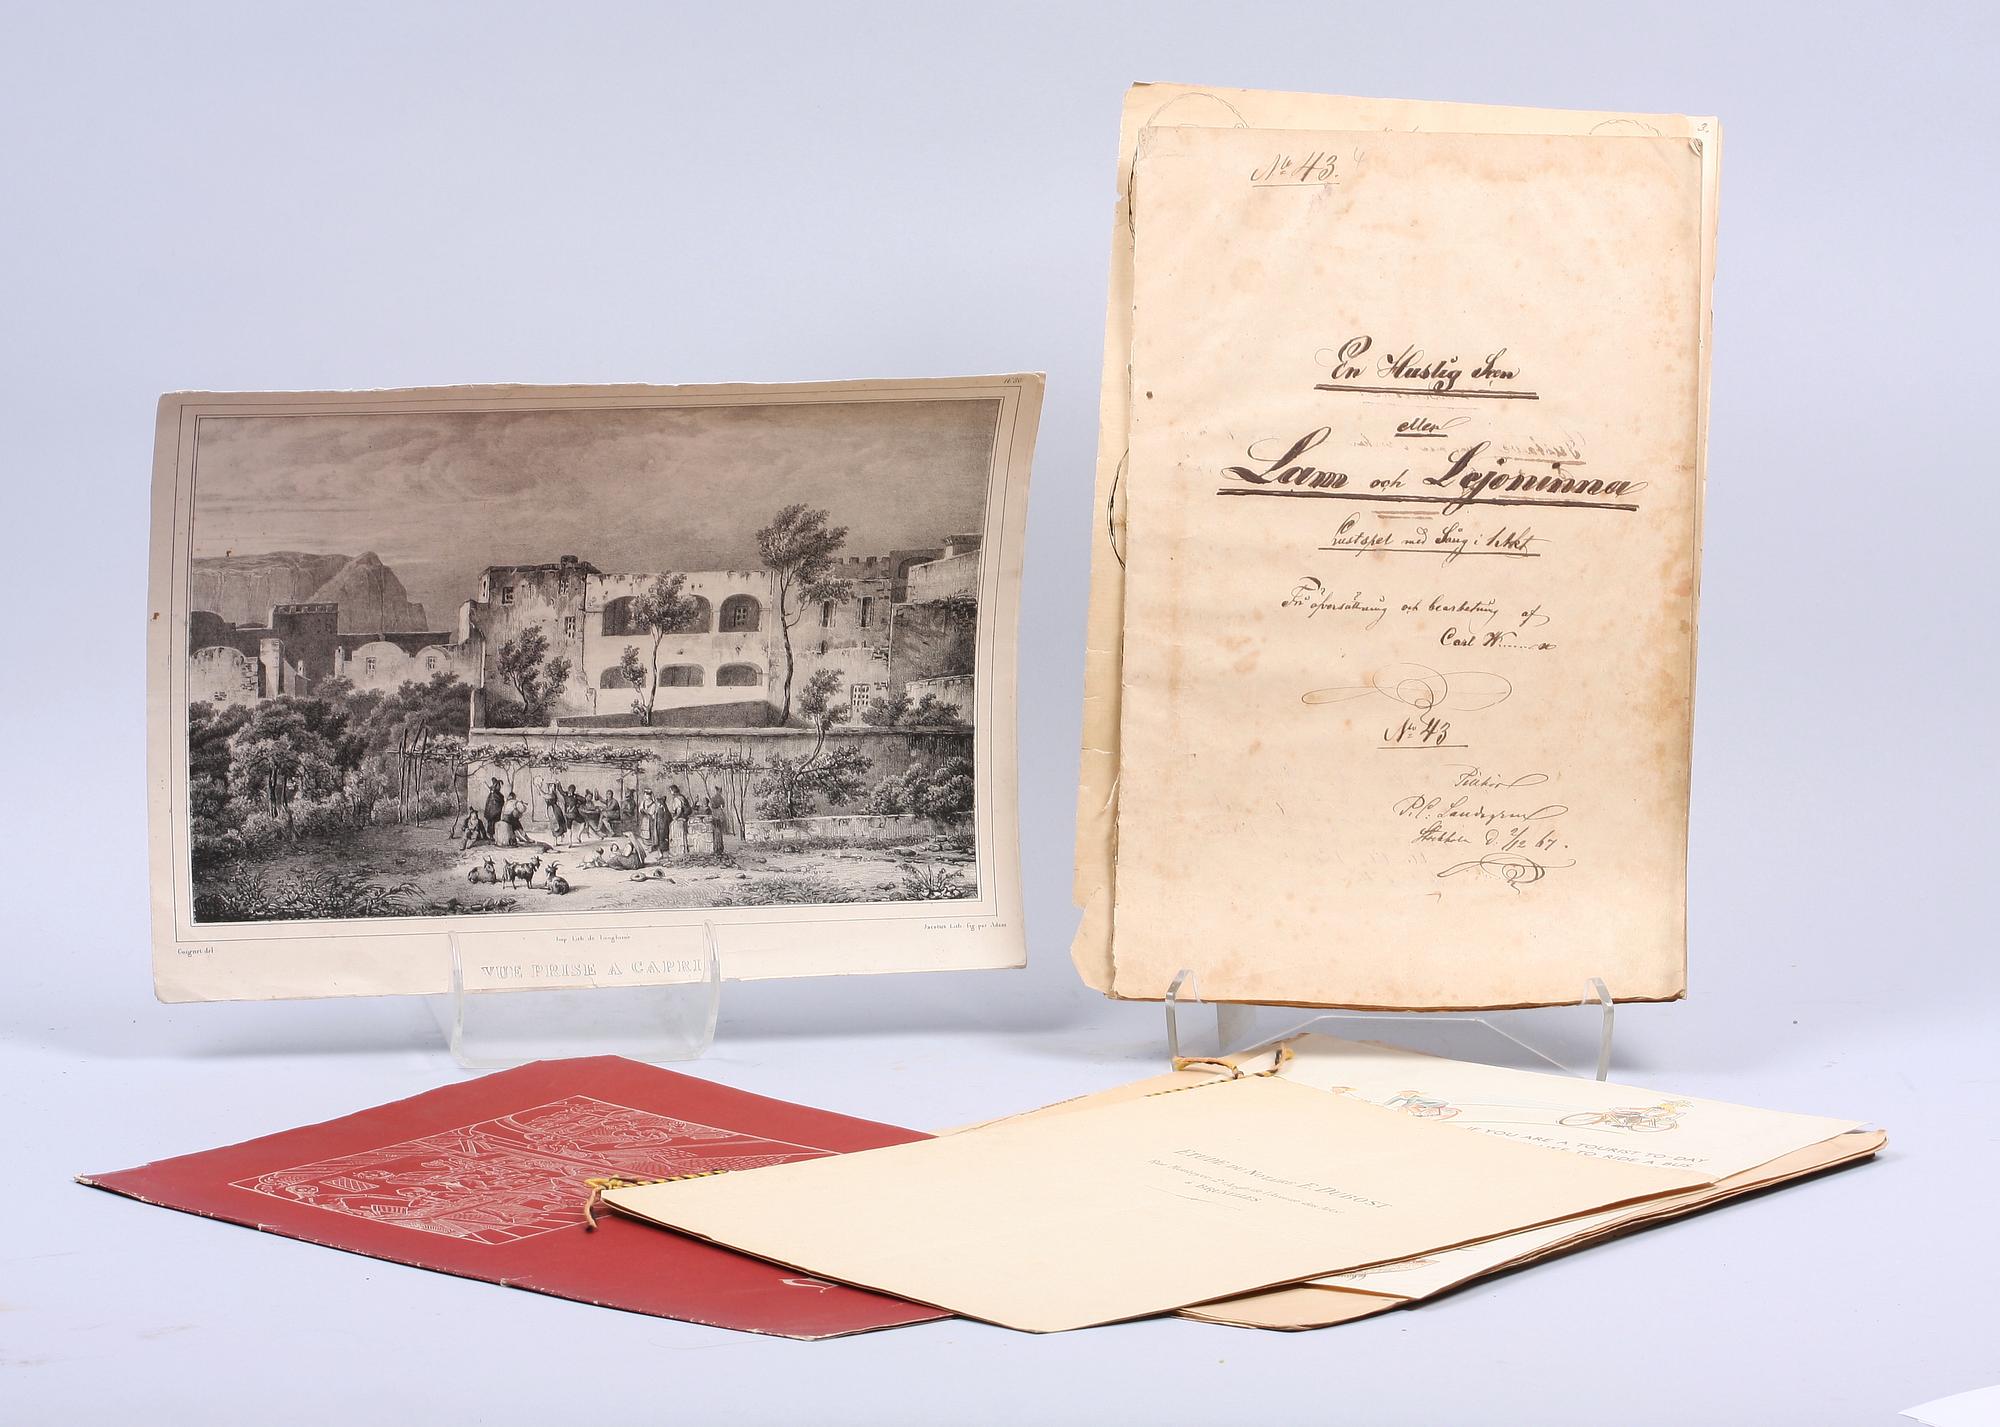 Nº 30
Coignet del
Imp. Lith. de Langlumé
Jacottet Lith. fig. par Adam
VUE PRISE A CAPRI
3.
Nº 43. 4
En Huslig Scen
eller
Lam och Lejoninna
Lustspel med Sång i 1 Akt
Fri öfversättning och bearbetning af
Carl
Nº 43
Tillhör
P. C. Landegren
Stockholm d. 2/12 67.
ETUDE DU NOTAIRE E. DUBOST
à BRUXELLES
IF YOU ARE A TOURIST TO-DAY
TO RIDE A BUS